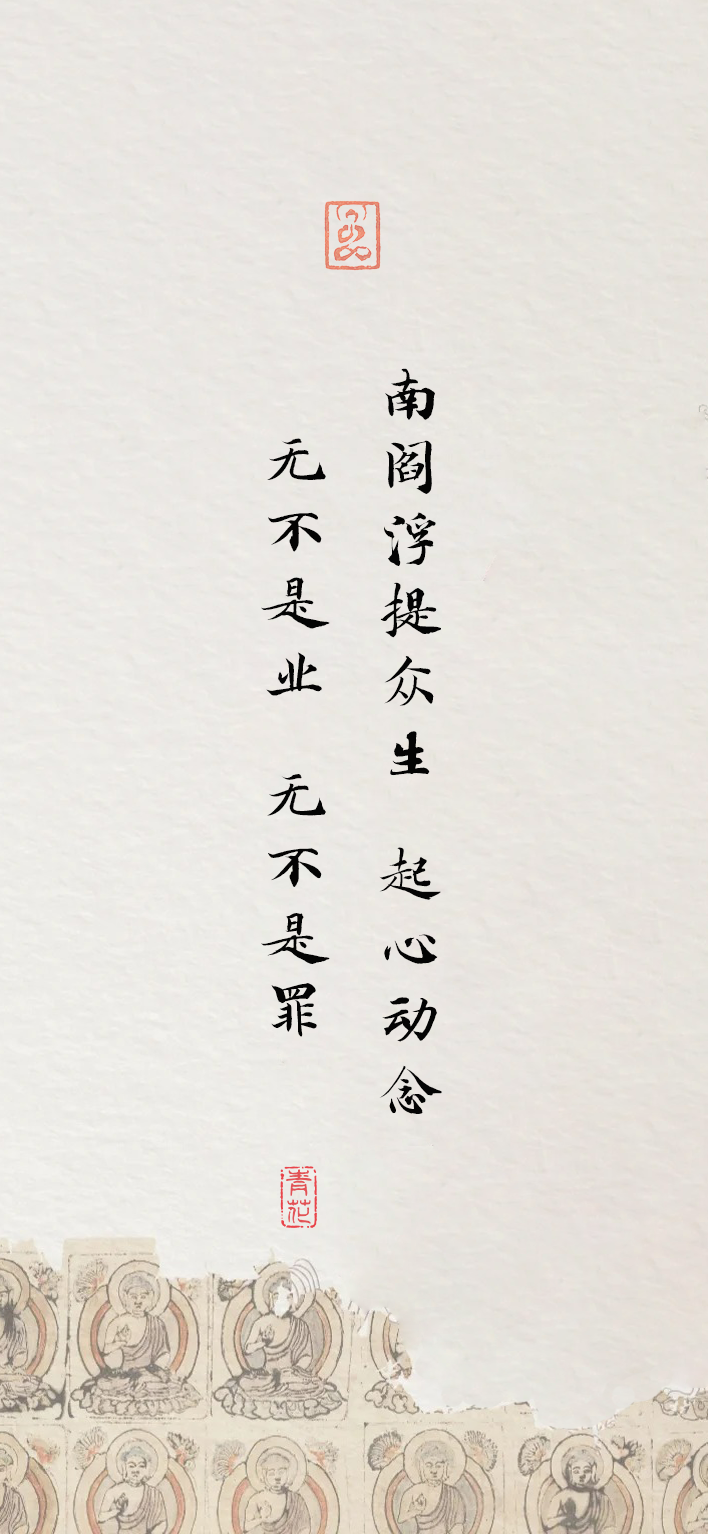 南阎浮提众生 起心动念
无不是业 无不是罪
青花